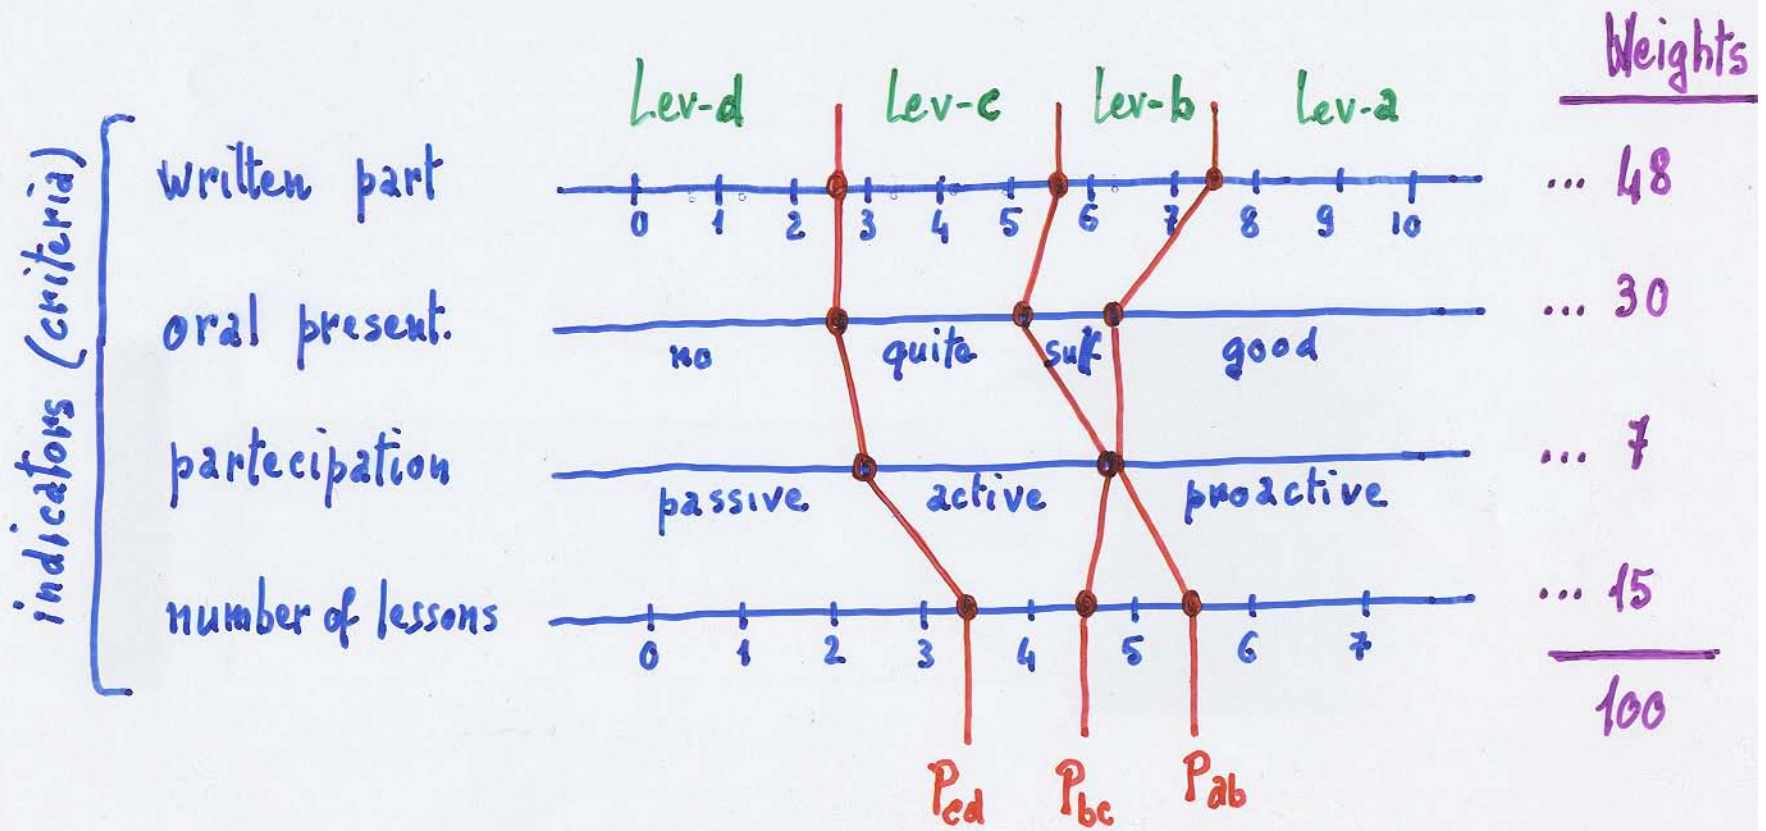 Weights
Lev-d Lev-c Lev-b Lev-a
indicators (criteria)
written part ... 48
0 1 2 3 4 5 6 7 8 9 10
oral present. ... 30
no quite suff good
partecipation ... 7
passive active proactive
number of lessons ... 15
0 1 2 3 4 5 6 7
100
Pcd Pbc Pab